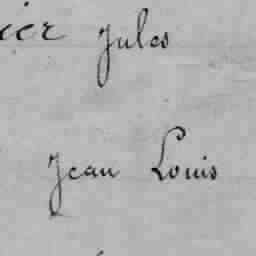 Jules
Jean Louis